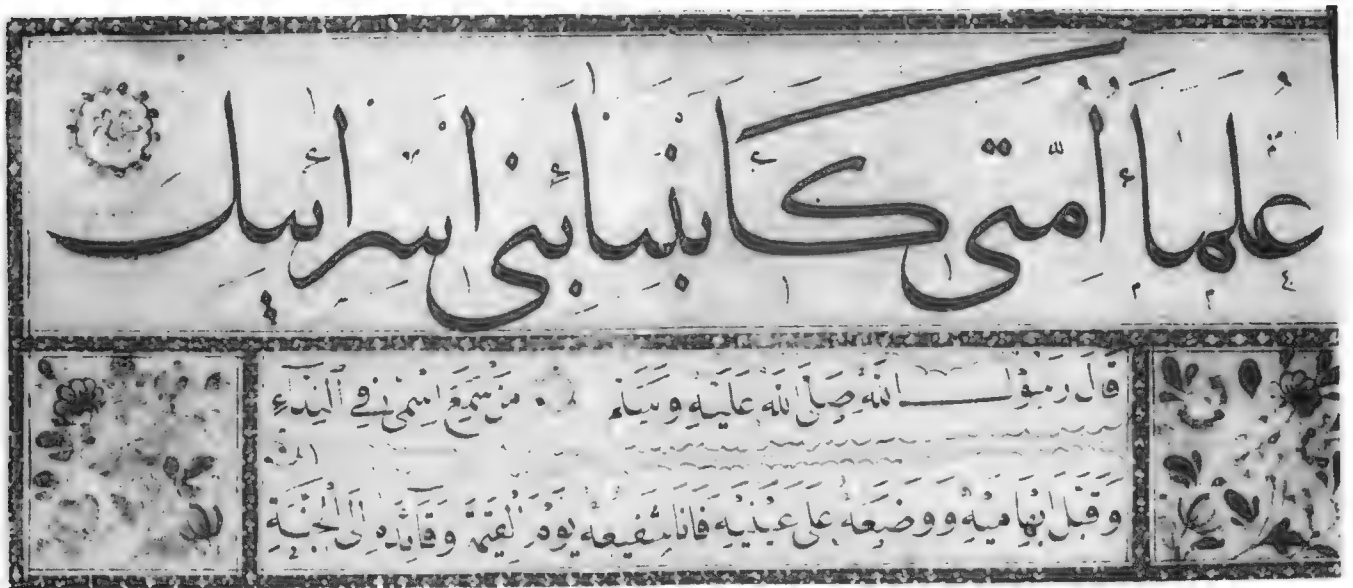 عُلَمَاءُ أُمَّتِى كَأَنْبِيَاءِ بَنِى اِسْرَائِيل
قَالَ رَسُولُ اللّٰهِ صَلَّى اللّٰهُ عَلَيْهِ وَسَلَّمَ مَنْ سَمِعَ اِسْمِى فِى النِّدَاءِ
وَقَبَّلَ اِبْهَامَيْهِ وَوَضَعَهُ عَلَى عَيْنَيْهِ فَاَنَا شَفِيعُهُ يَوْمَ الْقِيٰمَةِ وَقَائِدُهُ اِلَى الْجَنَّةِ